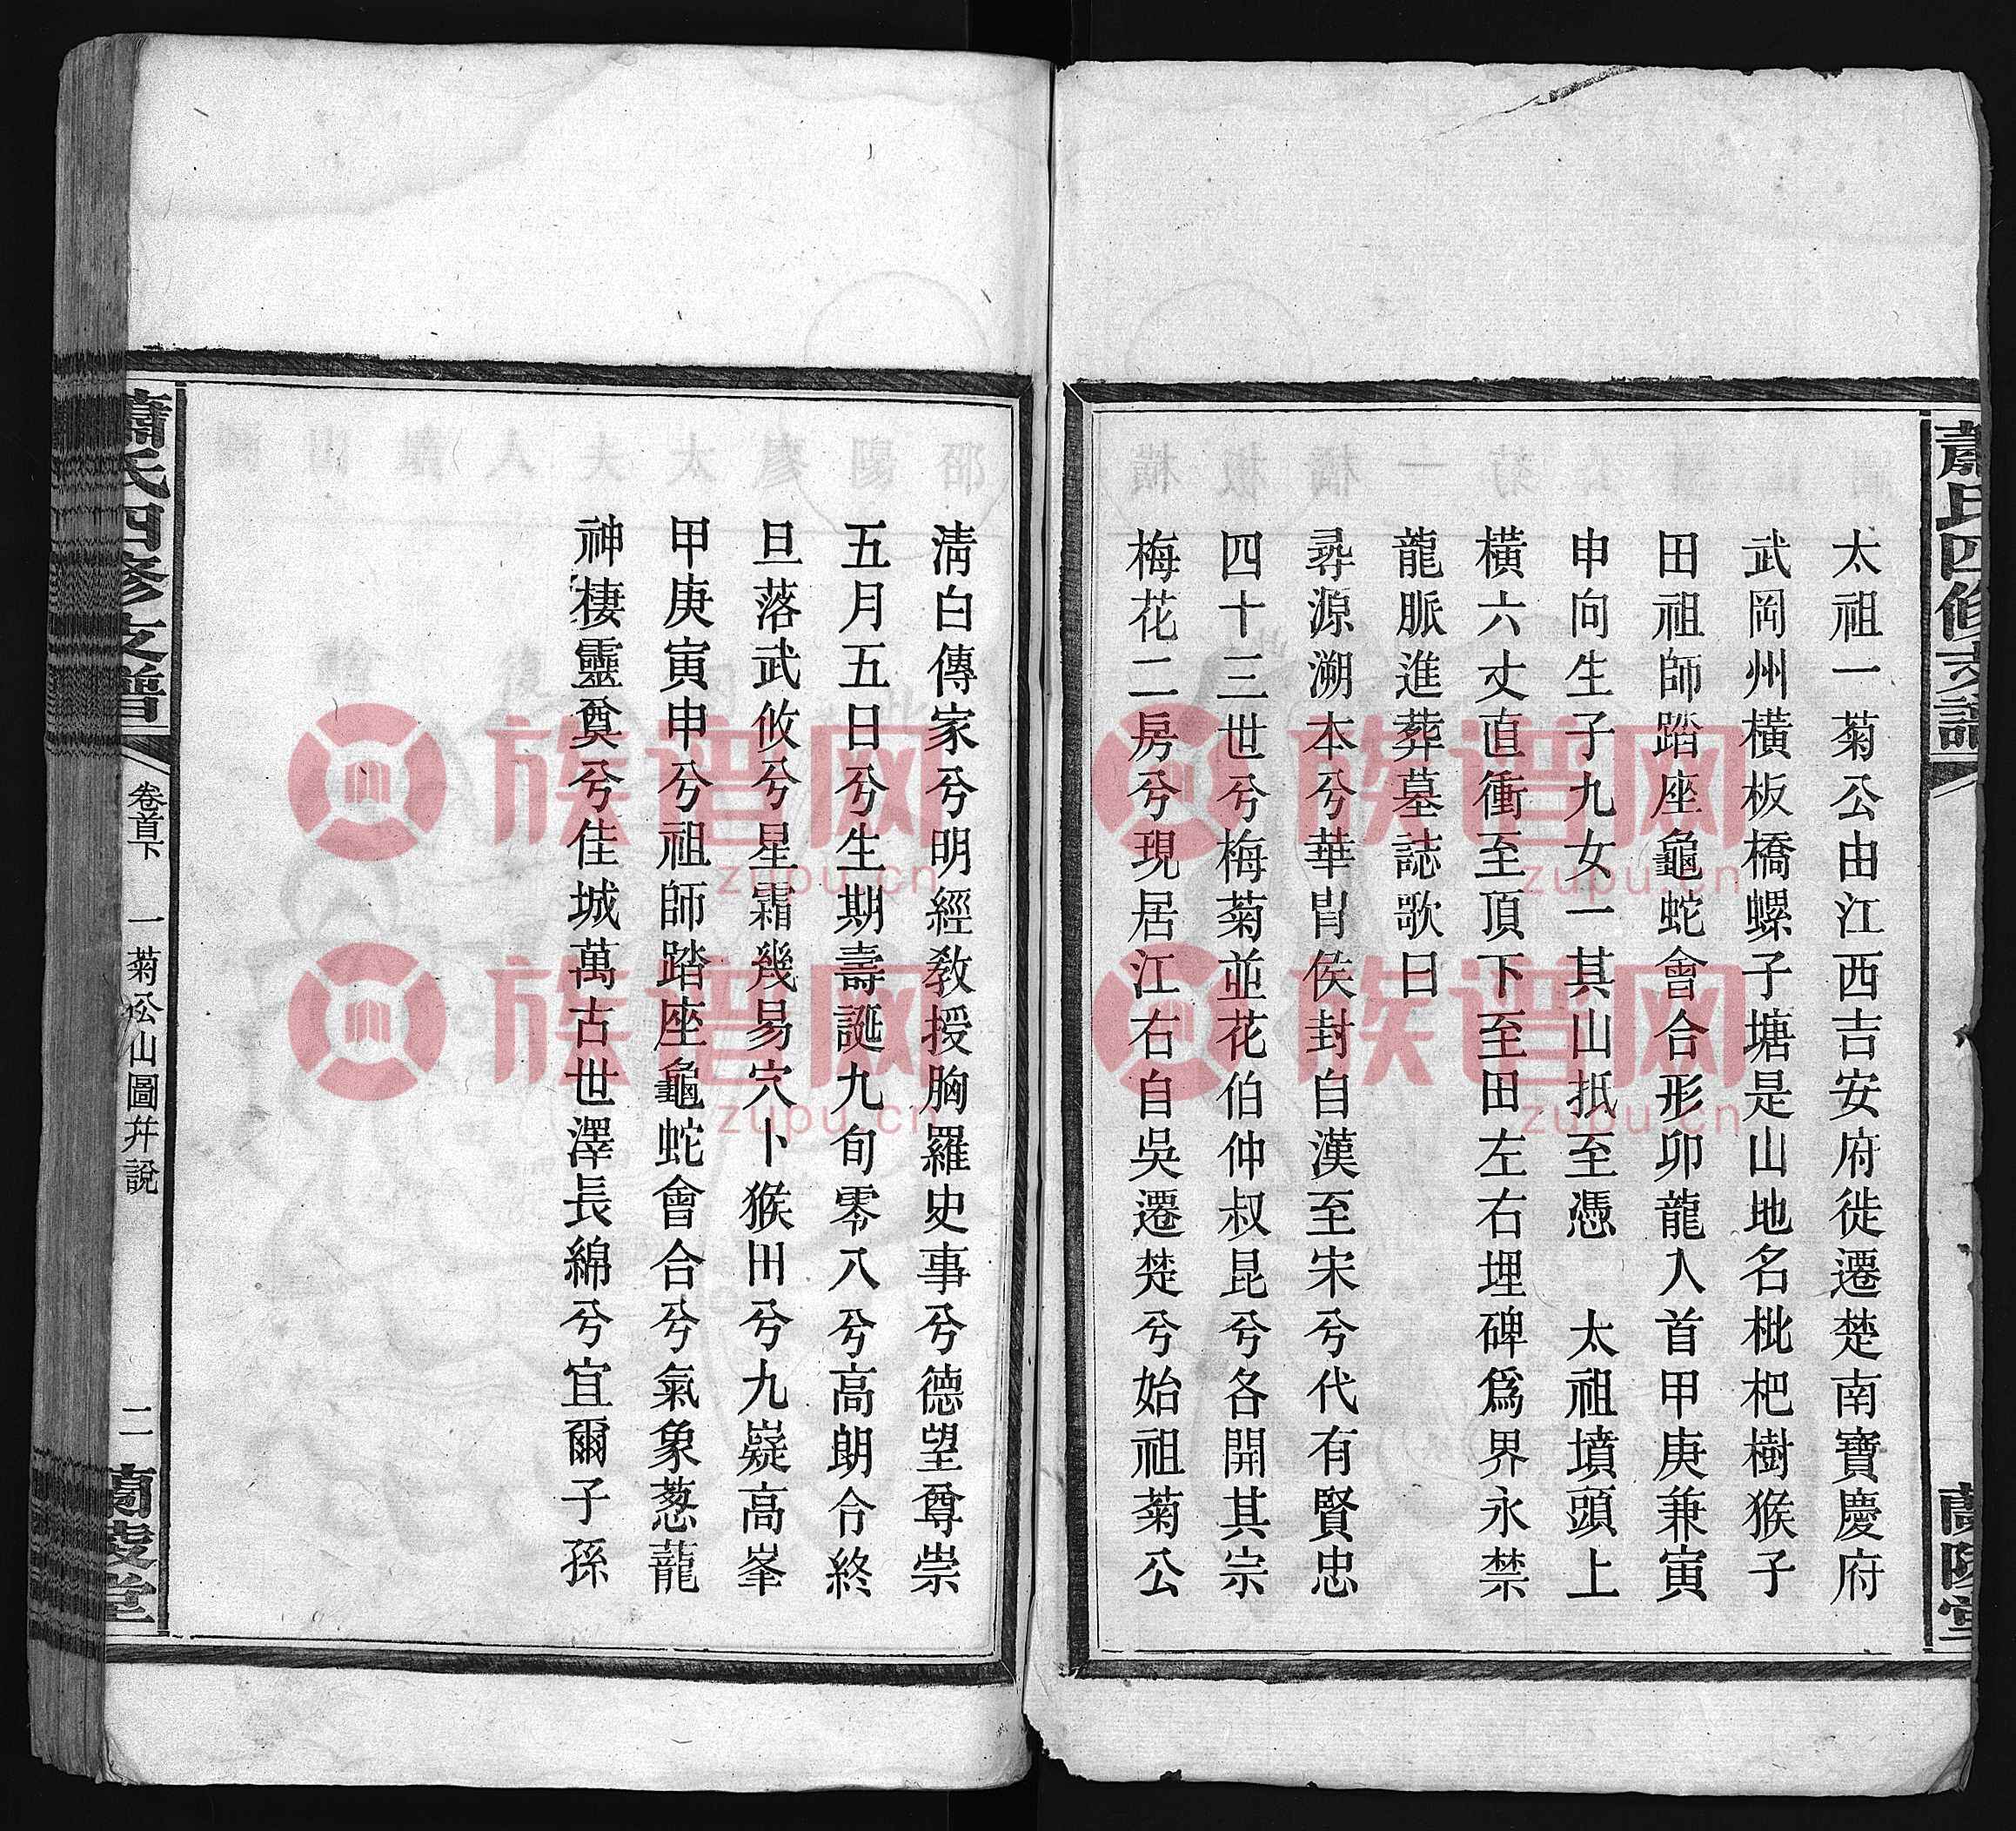 蕭氏四修支譜
蘭陵堂
太祖一菊公由江西吉安府徙遷楚南寶慶府
武岡州橫板橋螺子塘是山地名枇杷樹猴子
田祖師踏座龜蛇會合形卯龍入首甲庚兼寅
申向生子九女一其山抵至憑　太祖墳頭上
橫六丈直衝至頂下至田左右埋碑爲界永禁
龍脈進葬墓誌歌曰
尋源溯本兮華胄侯封自漢至宋兮代有賢忠
四十三世兮梅菊並花伯仲叔昆兮各開其宗
梅花二房兮現居江右自吳遷楚兮始祖菊公
清白傳家兮明經教授胸羅史事兮德望尊崇
五月五日兮生期壽誕九旬零八兮高朗合終
旦落武攸兮星霜幾易穴卜猴田兮九嶷高峯
甲庚寅申兮祖師踏座龜蛇會合兮氣象葱蘢
神棲靈奠兮佳城萬古世澤長綿兮宜爾子孫
蕭氏四修支譜
卷首下　一菊公山圖幷說
二
蘭陵堂
族谱网
zupu.cn
族谱网
zupu.cn
族谱网
zupu.cn
族谱网
zupu.cn